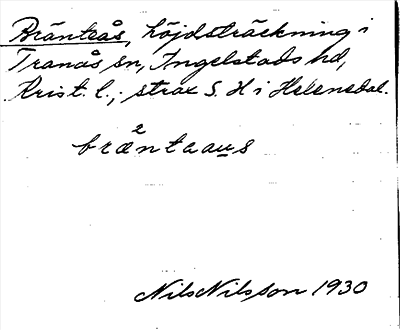 Bränteås, höjdsträckning i
Tranås sn, Ingelstads hd,
Krist. l.; strax S. H i Helensdal.
bræ²ntaaus
Nils Nilsson 1930